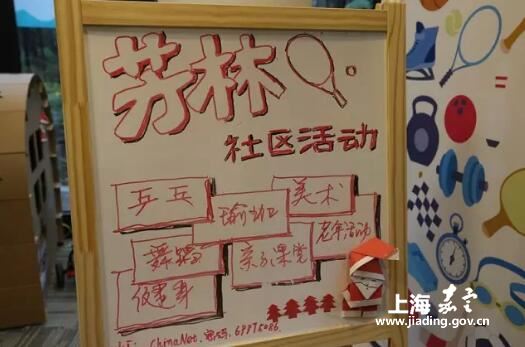 芳林
社区活动
乒乓
瑜珈
美术
舞蹈
亲子课堂
老年活动
健身
ChinaNet
上海嘉定
www.jiading.gov.cn